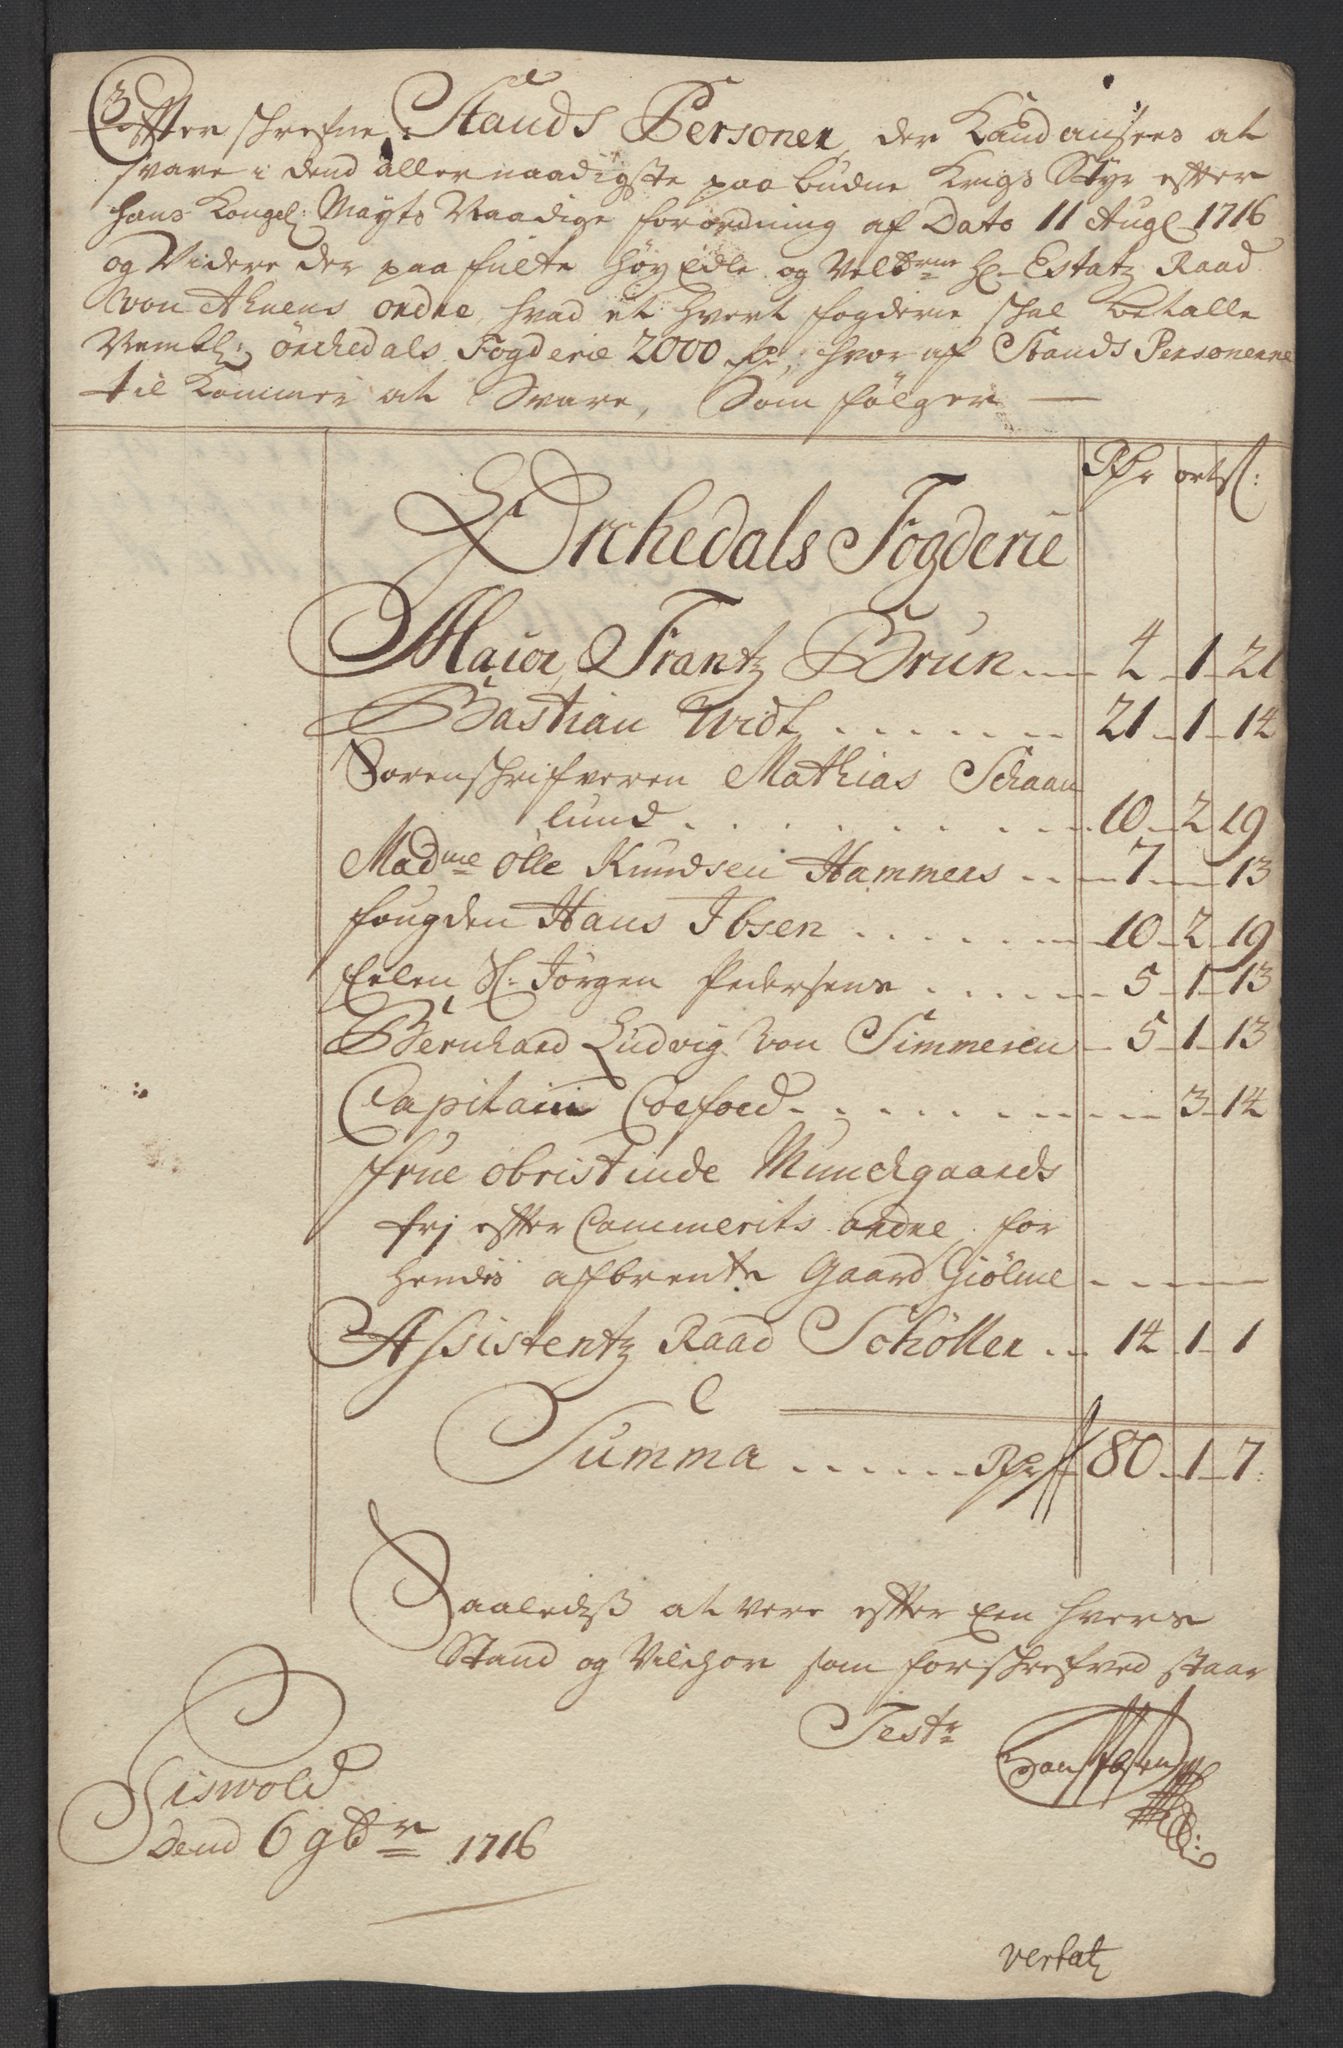 Effter schrefne Stands Personer, der kand ansees at
svare i dend allernaadigste paabudne Krigs Styr effter
hans Kongel: Mayts Naadige forordning af Dato 11 Aug 1716
og Videre der paa fulte Høy Edle og Velbrne Hr Estatz Raad
von Ahnens ordre, hvad et hvert fogderie skal betalle
Nemtl: Örchedals Fogderie 2000 Rdr, hvor af Stands Personerne
til kommer at Svare, Som følger
Rdr ort s:
Orchedals Fogderie
Maior Frantz Brun 4 1 21
Bastian Urdt 21 1 14
Sorenschrifveren Mathias Schaan
lund 10 2 19
Madme Olle Knudsen Hammers 7 13
fougden Hans Ibsen 10 2 19
Eelen Sl. Jörgen Pedersens 5 1 13
Bernhard Ludvig von Simmeren 5 1 13
Capitain Coefoed 3 14
frue obristinde Munchgaards
frj effter Cammerits ordre, for
hendes afbrente Gaard Giölme
Assistentz Raad Schöller 14 1 1
Summa Rdr 80 1 7
Saaledeß at vere effter Een hvers
Stand og Vilchor som forschrefved staar
Test
Hans Ibsen
Siswold
dend 6 9br 1716
vertat